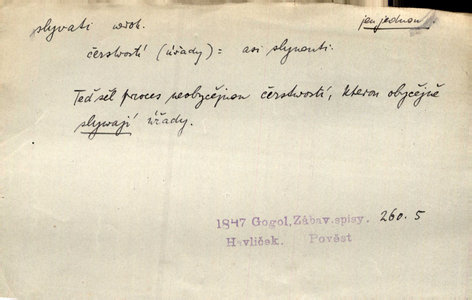 slyvati nedok. jen jednou.
čerstvostí (úřady) = asi slynouti.
Teď šel proces neobyčejnou čerstvostí, kterou obyčejně
slywají úřady.
1847 Gogol, Zábav. spisy. 260. 5
Havlíček. Pověst